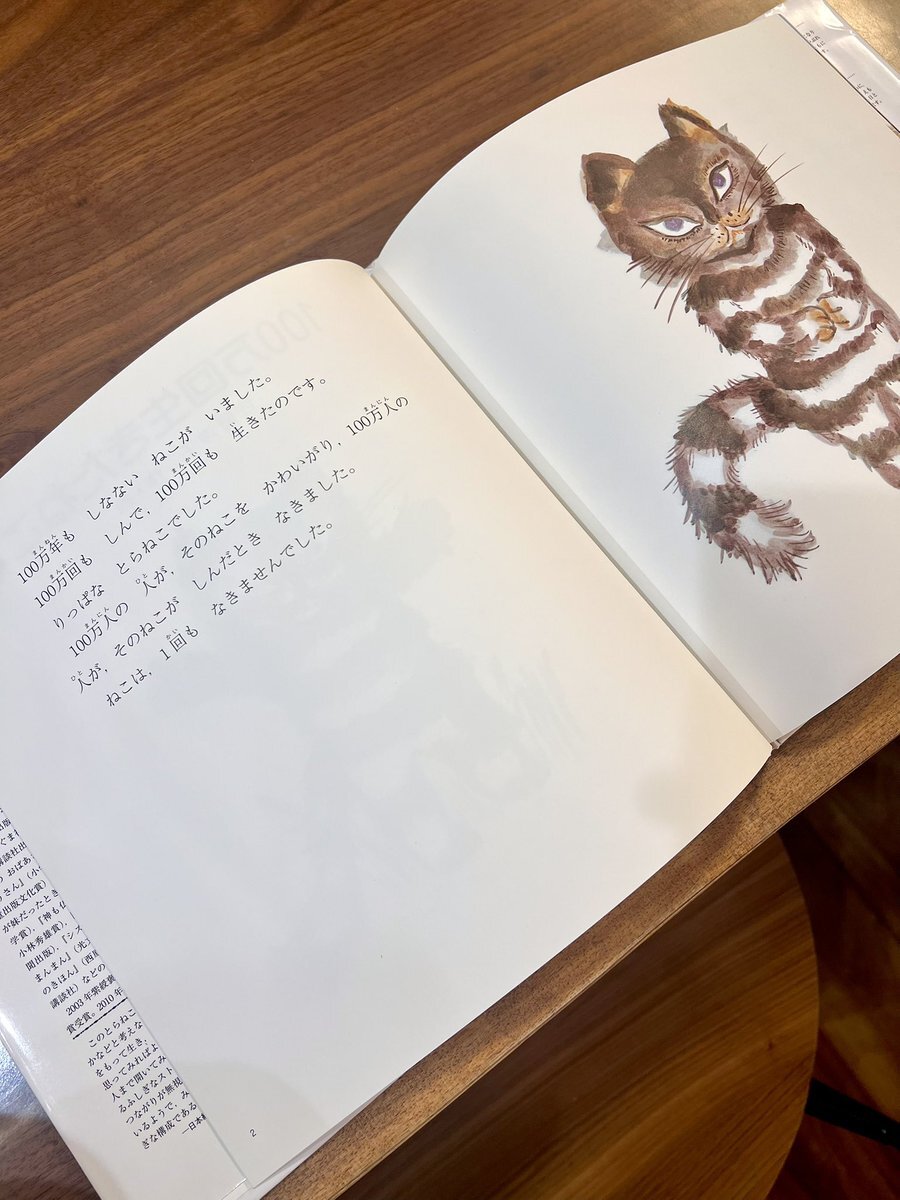 100万年も しなない ねこが いました。
100万回も しんで,100万回も 生きたのです。
りっぱな とらねこでした。
100万人の 人が,そのねこを かわいがり,100万人の
人が,そのねこが しんだとき なきました。
ねこは,1回も なきませんでした。
2
講談社出
おばあ
さん』(小
出版文化賞)
が妹だったとき
学賞),『神も仏
小林秀雄賞),
開出版),『シズ
まんまん』(光
のきほん』(西原
講談社)などの
2003年紫綬褒
賞受賞。2010年
このとらねこ
かなどと考えな
をもって生き,
思ってみればよ
人まで開いてみ
るふしぎなスト
つながりが無視
いるようで,み
ぎな構成である
—日本